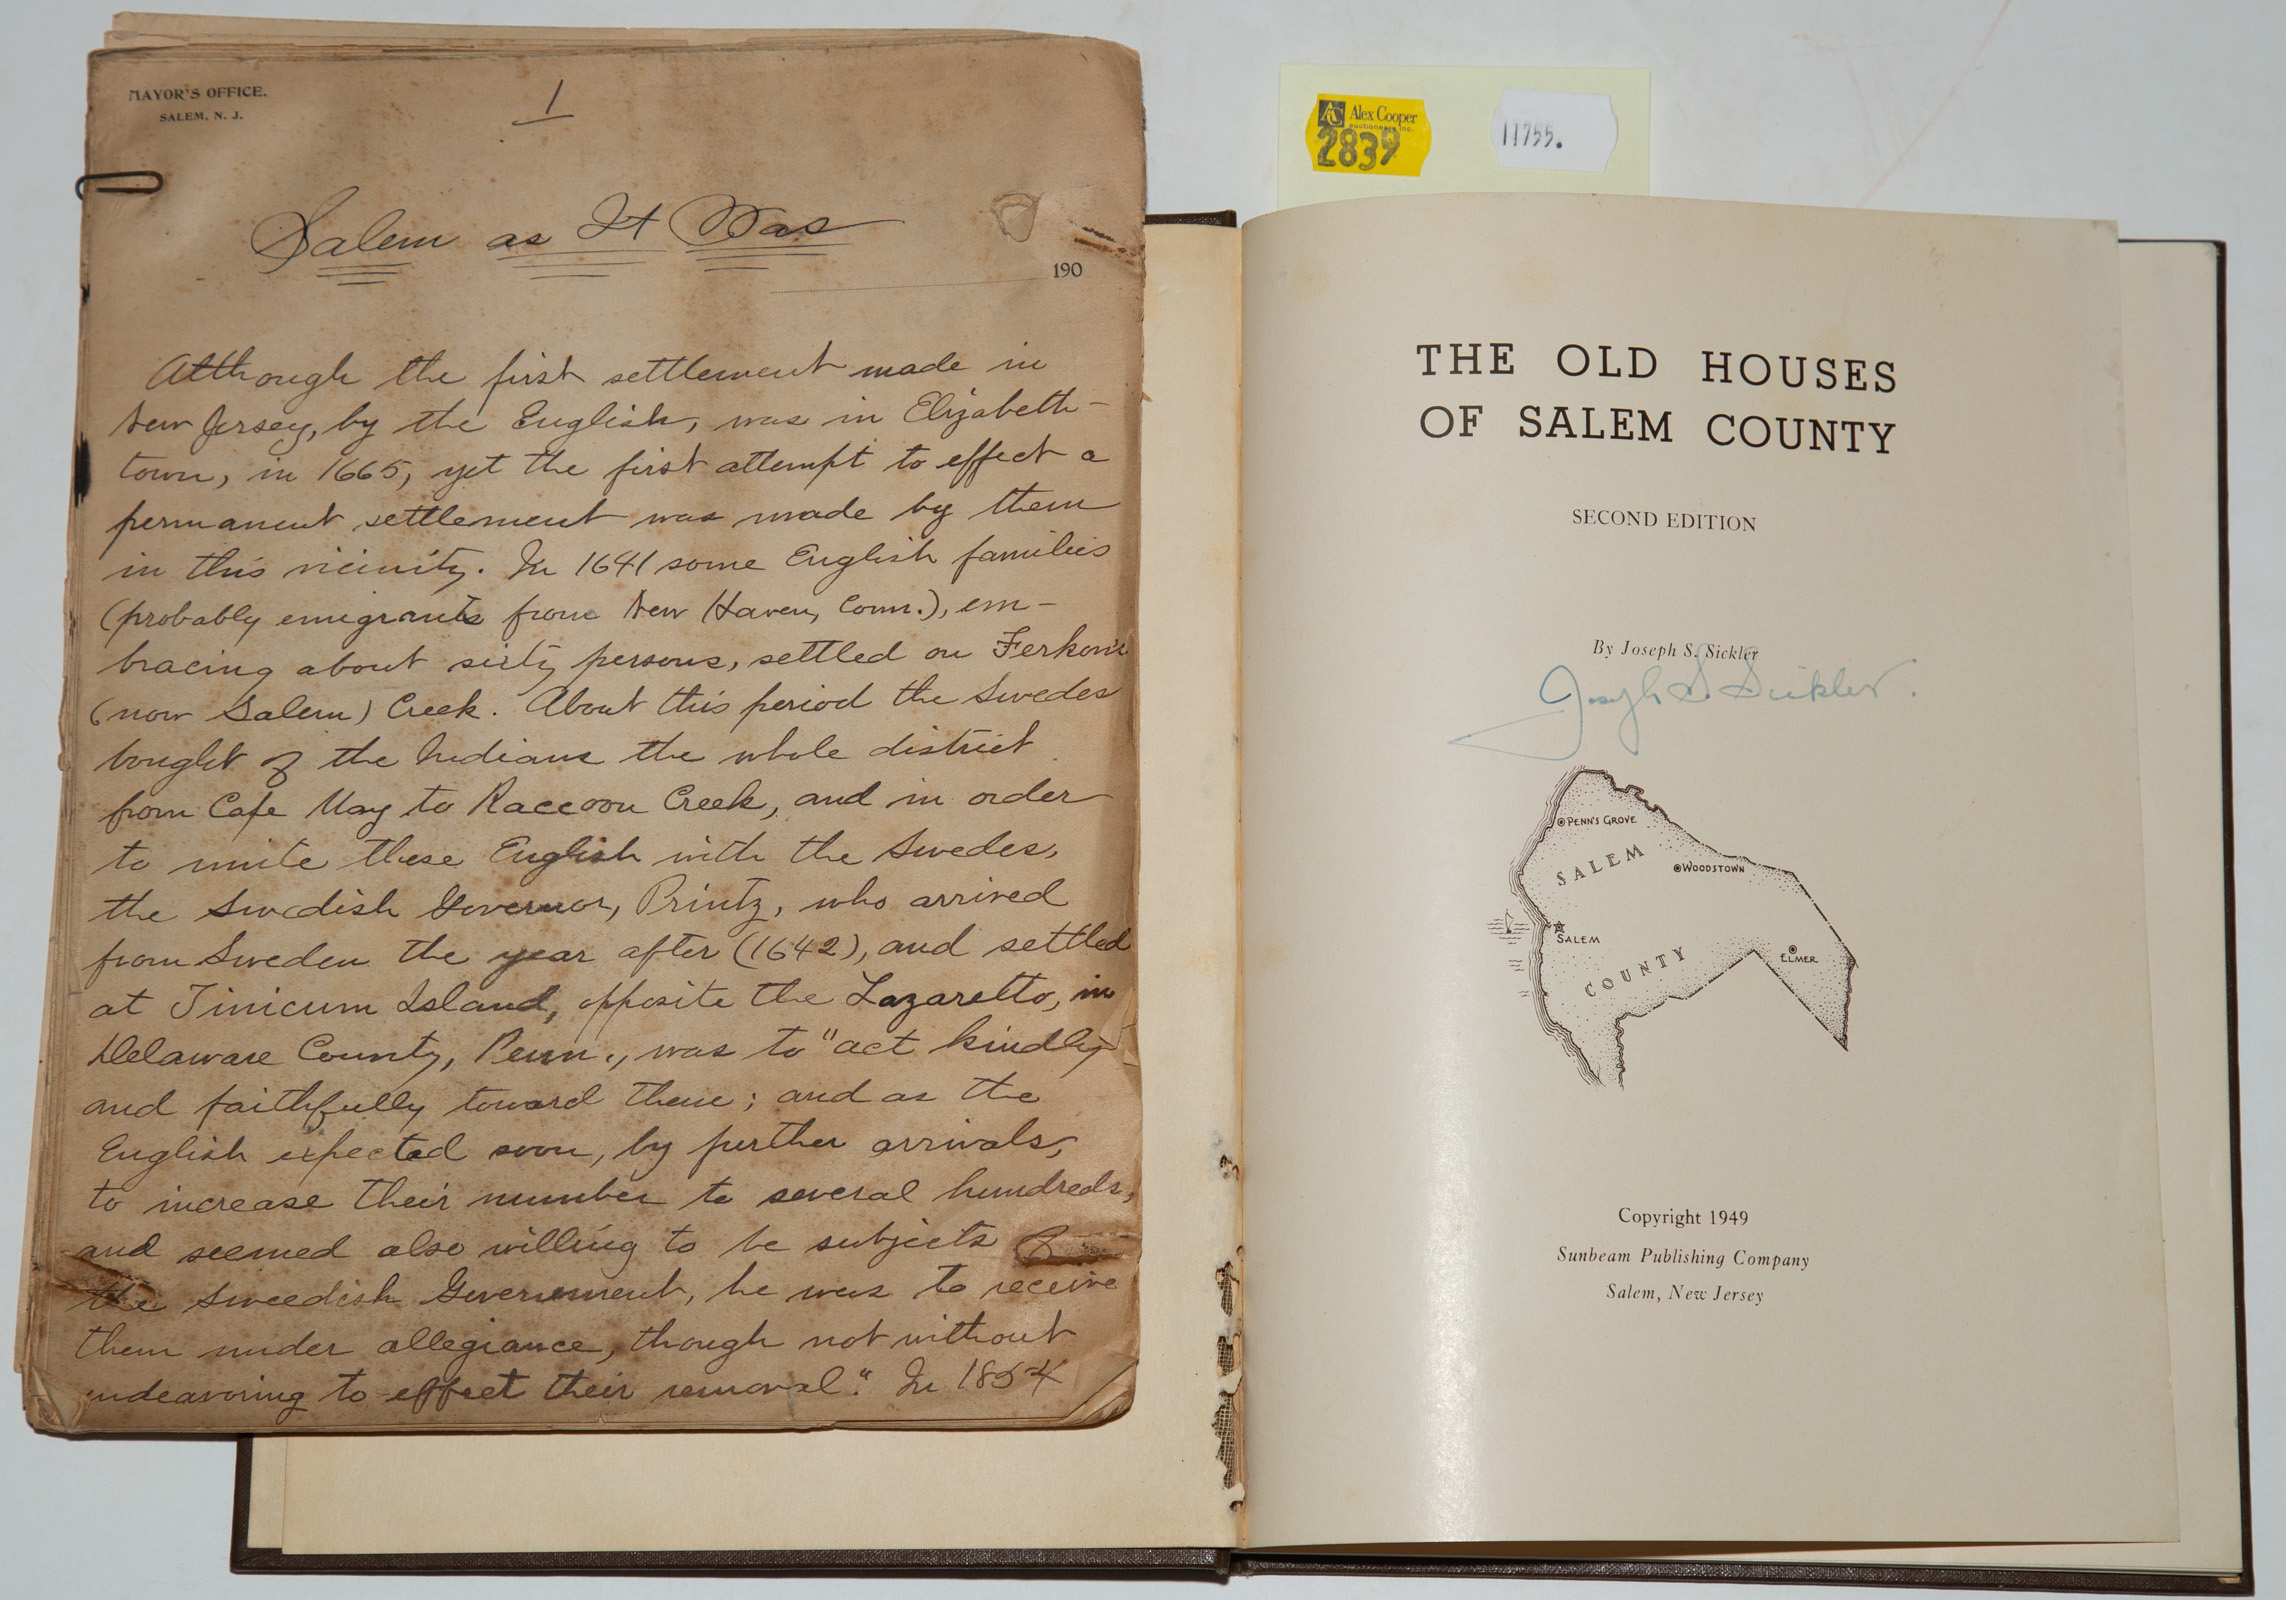 MAYOR'S OFFICE.
SALEM, N. J.
1
Salem as It Was
190
Although the first settlement made in
New Jersey, by the English, was in Elizabeth-
town, in 1665, yet the first attempt to effect a
permanent settlement was made by them
in this vicinity. In 1641 some English families
(probably emigrants from New Haven, Conn.), em-
bracing about sixty persons, settled on Ferkon's
(now Salem) Creek. About this period the Swedes
bought of the Indians the whole district
from Cape May to Raccoon Creek, and in order
to unite these English with the Swedes,
the Swedish Governor, Printz, who arrived
from Sweden the year after (1642), and settled
at Tinicum Island, opposite the Lazaretto, in
Delaware County, Penn., was to "act kindly
and faithfully toward them; and as the
English expected soon, by further arrivals,
to increase their number to several hundreds,
and seemed also willing to be subjects
the Sweedish Government, he was to receive
them under allegiance, though not without
endeavoring to effect their removal." In 1854
Alex Cooper
auctioneers inc.
2839
11755.
THE OLD HOUSES
OF SALEM COUNTY
SECOND EDITION
By Joseph S. Sickler
Joseph S. Sickler.
PENN'S GROVE
SALEM
WOODSTOWN
SALEM
ELMER
COUNTY
Copyright 1949
Sunbeam Publishing Company
Salem, New Jersey